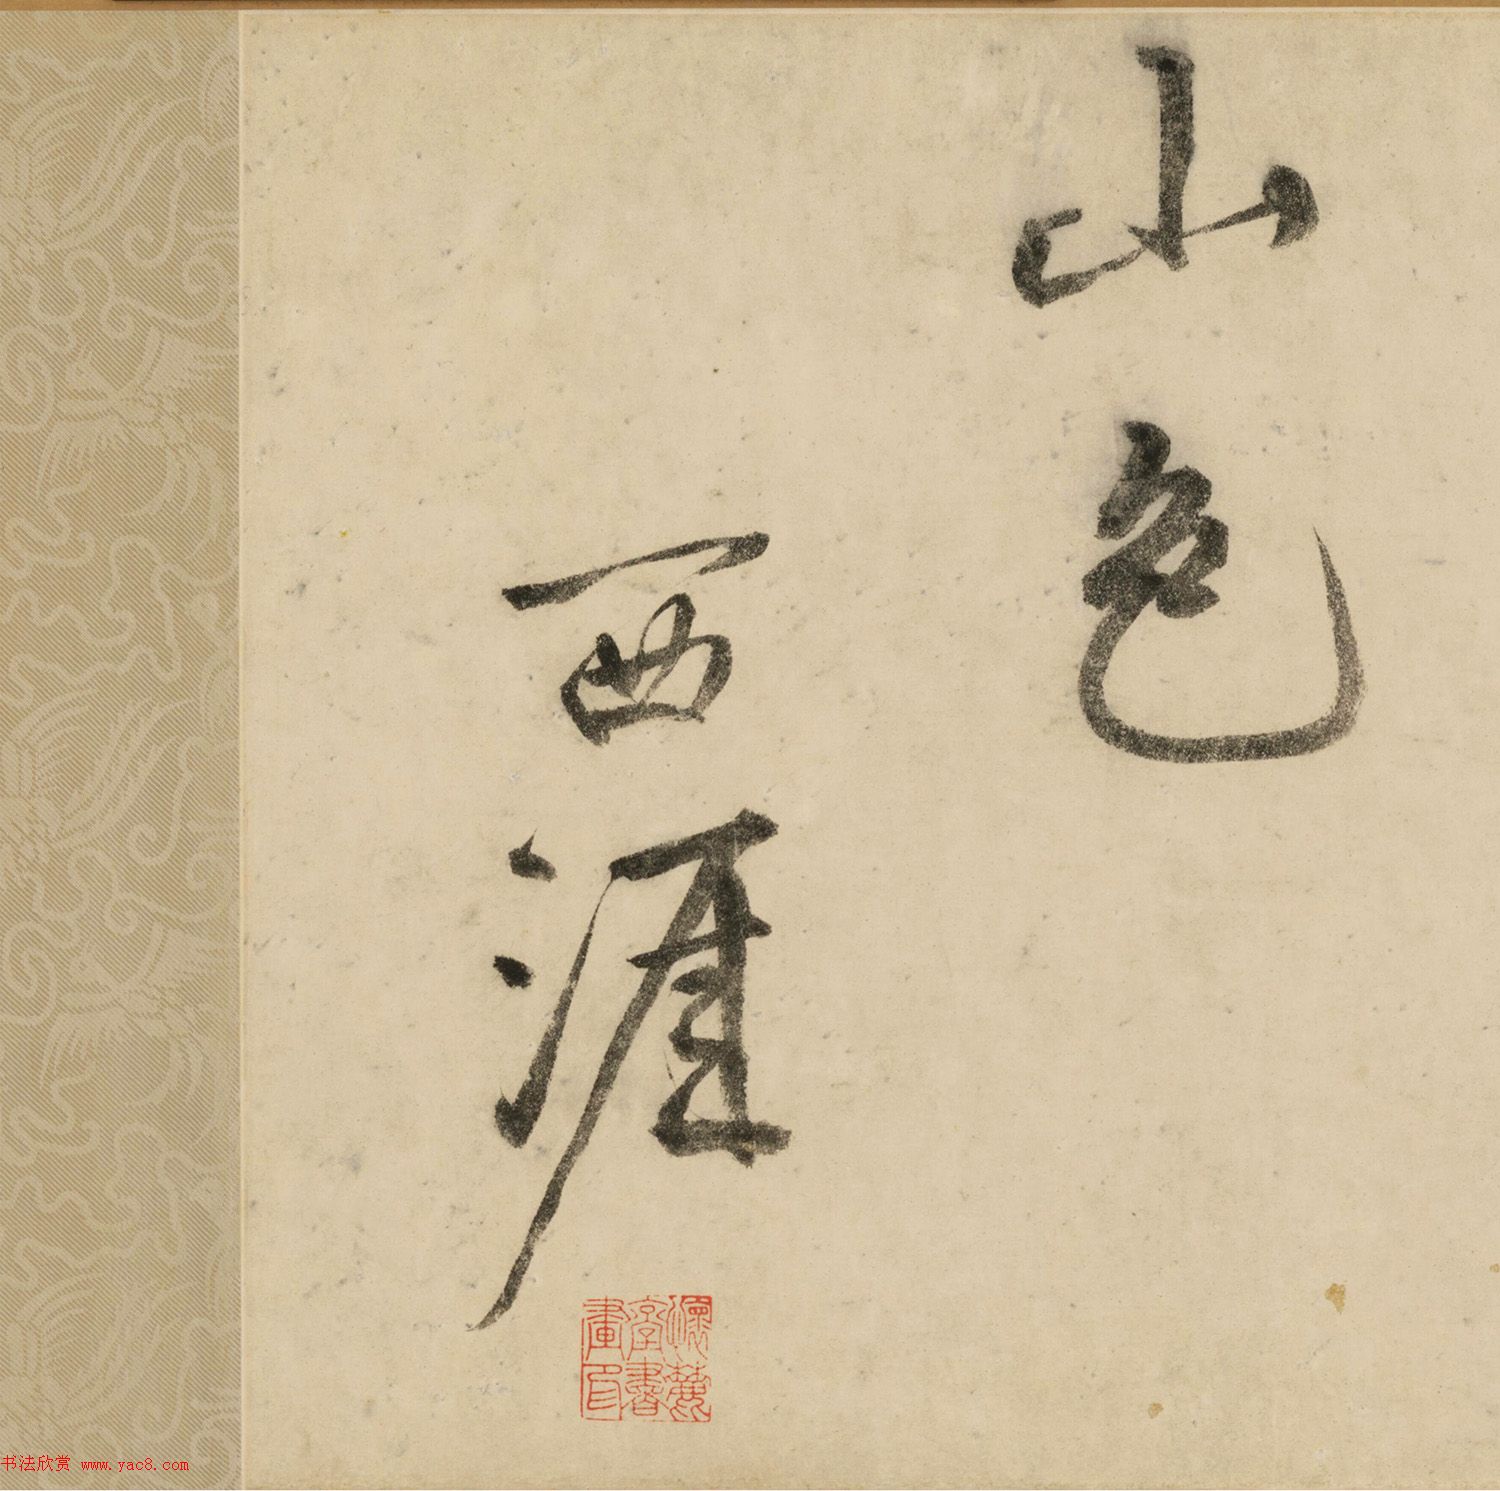 山色
西涯
懷麓
堂書
畫印
书法欣赏 www.yac8.com